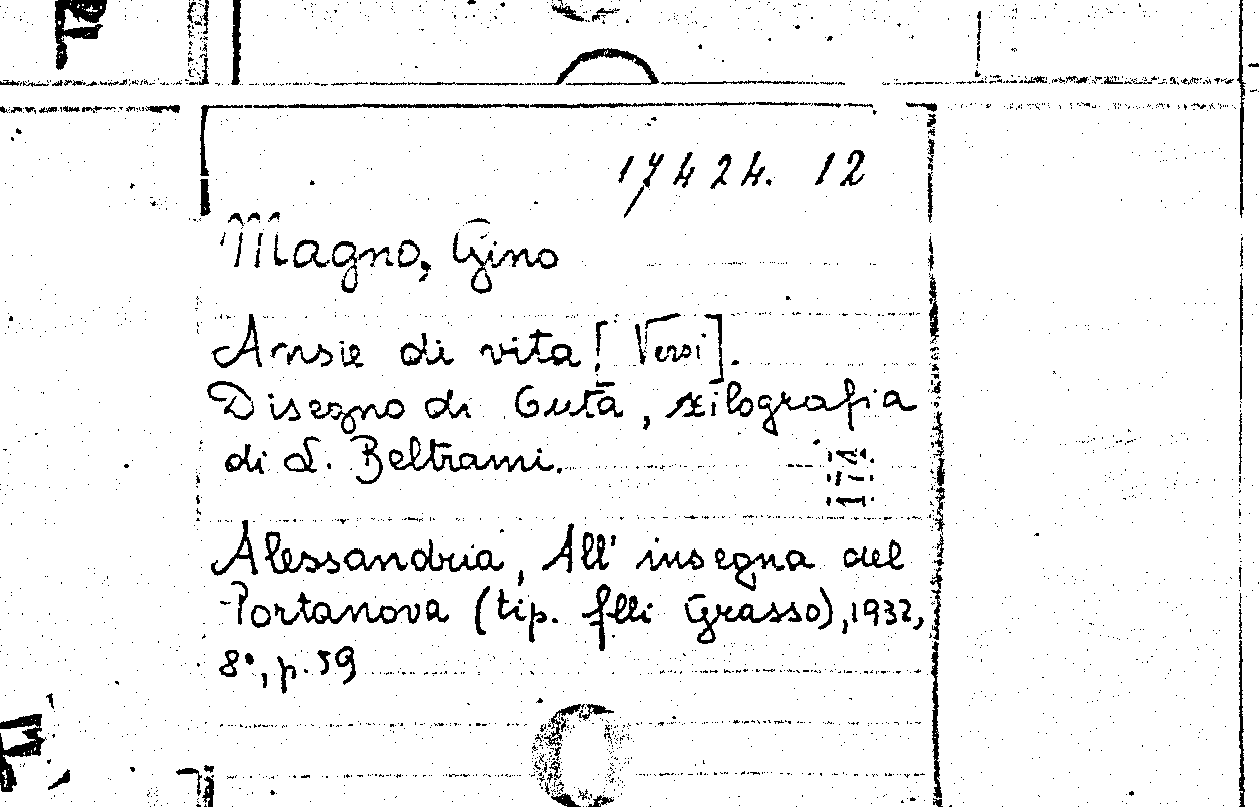 17424. 12
Magno, Gino
Ansie di vita! [Versi].
Disegno di Guta, xilografia
di L. Beltrami.
174
Alessandria, All' insegna del
Portanova (tip. flli Grasso), 1932,
8°, p. 59